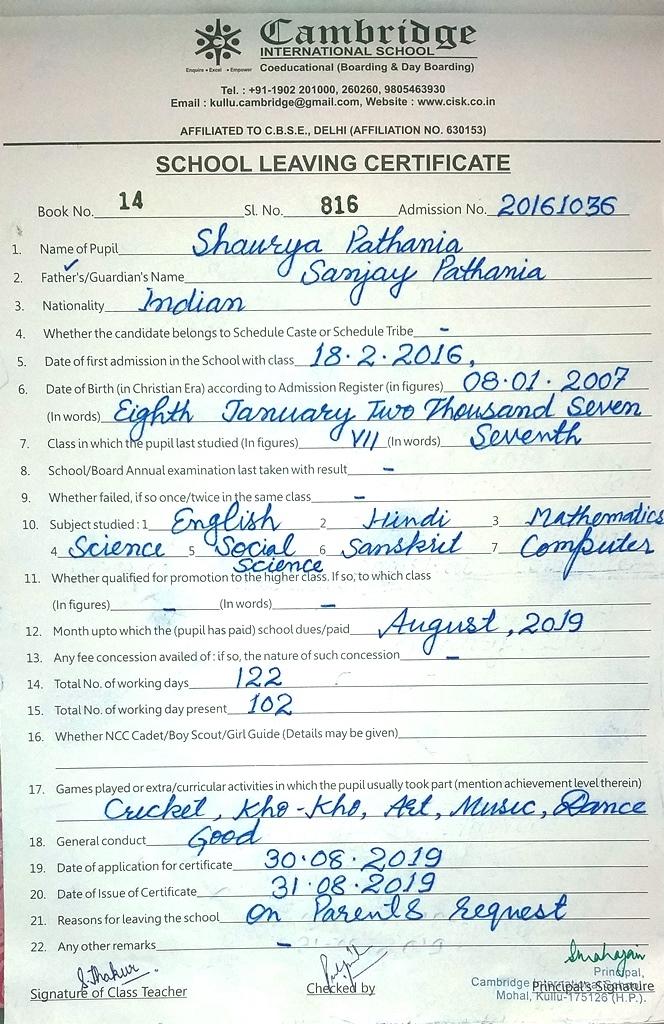 Cambridge
INTERNATIONAL SCHOOL
Enquire • Excel • Empower
Coeducational (Boarding & Day Boarding)
Tel. : +91-1902 201000, 260260, 9805463930
Email : kullu.cambridge@gmail.com, Website : www.cisk.co.in
AFFILIATED TO C.B.S.E., DELHI (AFFILIATION NO. 630153)
SCHOOL LEAVING CERTIFICATE
Book No. 14 Sl. No. 816 Admission No. 20161036
1. Name of Pupil Shaurya Pathania
2. Father's/Guardian's Name Sanjay Pathania
3. Nationality Indian
4. Whether the candidate belongs to Schedule Caste or Schedule Tribe -
5. Date of first admission in the School with class 18.2.2016,
6. Date of Birth (in Christian Era) according to Admission Register (in figures) 08.01.2007
(In words) Eighth January Two Thousand Seven
7. Class in which the pupil last studied (In figures) VII (In words) Seventh
8. School/Board Annual examination last taken with result -
9. Whether failed, if so once/twice in the same class -
10. Subject studied : 1 English 2 Hindi 3 Mathematics
4 Science 5 Social Science 6 Sanskrit 7 Computer
11. Whether qualified for promotion to the higher class. If so, to which class
(In figures) - (In words) -
12. Month upto which the (pupil has paid) school dues/paid August, 2019
13. Any fee concession availed of : if so, the nature of such concession -
14. Total No. of working days 122
15. Total No. of working day present 102
16. Whether NCC Cadet/Boy Scout/Girl Guide (Details may be given)
17. Games played or extra/curricular activities in which the pupil usually took part (mention achievement level therein)
Cricket, Kho-Kho, Art, Music, Dance
18. General conduct Good
19. Date of application for certificate 30.08.2019
20. Date of Issue of Certificate 31.08.2019
21. Reasons for leaving the school On Parents request
22. Any other remarks -
S.Thakur
Principal,
Cambridge International School
Signature of Class Teacher Checked by Principal's Signature
Mohal, Kullu-175126 (H.P.)